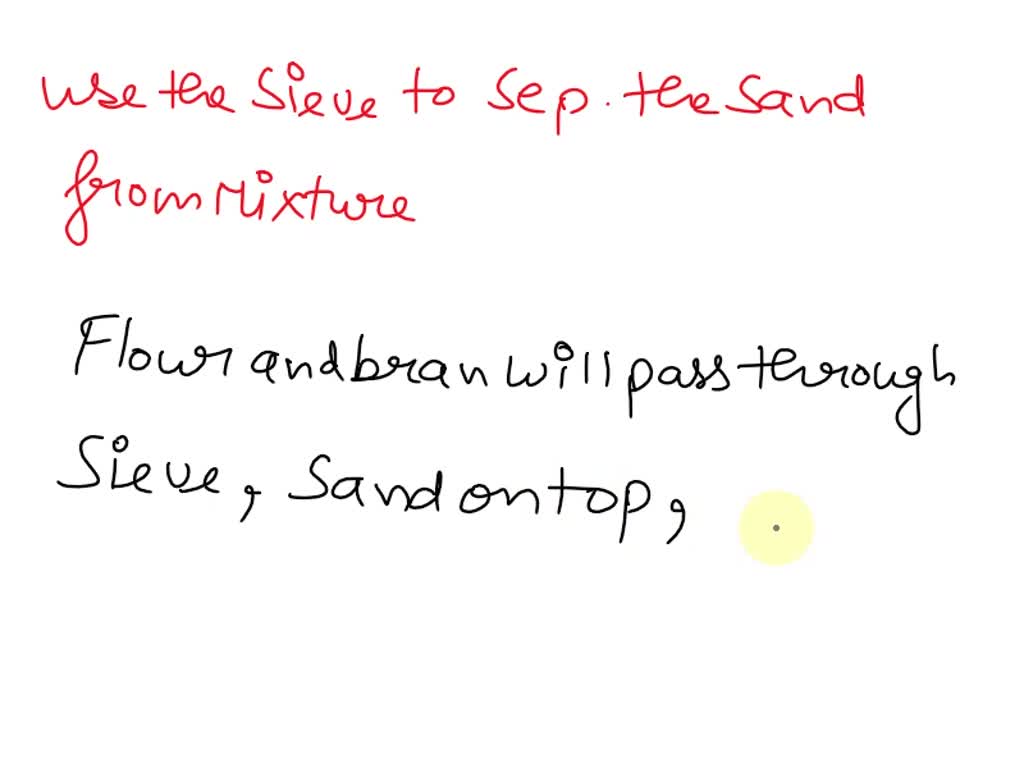 use the Sieve to Sep. the Sand
from Mixture
Flour and bran will pass through
Sieve, Sand on top,